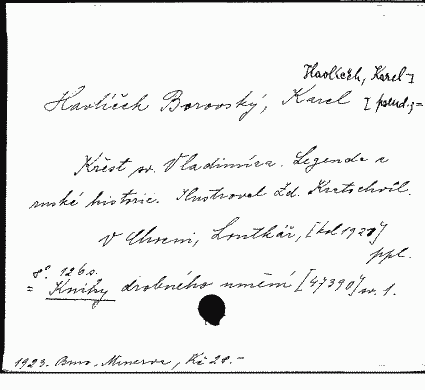 Havlíček, Karel
Havlíček Borovský, Karel [pseud.]=
Křest sv. Vladimíra. Legenda z
ruské historie. Ilustroval Zd. Kratochvíl.
V Chocni, Loutkář, [kol 1920]
ppl.
8°. 126 s.
= Knihy drobného umění [47390] sv. 1.
1923. Brno. Minerva, Kč 28.-